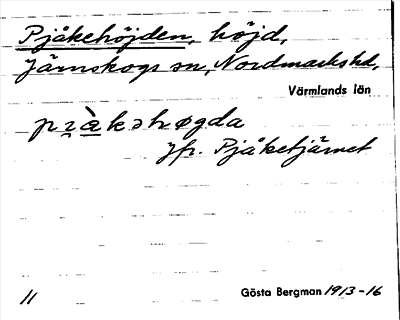 Pjåkehöjden, höjd,
Järnskogs sn, Nordmarks hd,
Värmlands län
pɪ̯å̀kəhøgda
Jfr. Pjåketjärnet
11 Gösta Bergman 1913-16